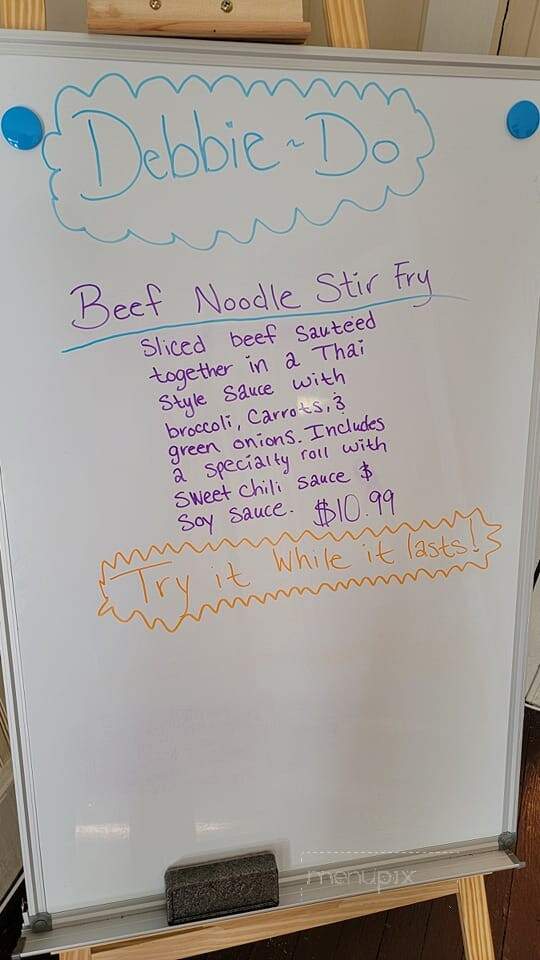 Debbie~Do
Beef Noodle Stir Fry
Sliced beef sautéed
together in a Thai
style sauce with
broccoli, carrots, &
green onions. Includes
a specialty roll with
sweet chili sauce &
soy sauce. $10.99
Try it while it lasts!
menupix